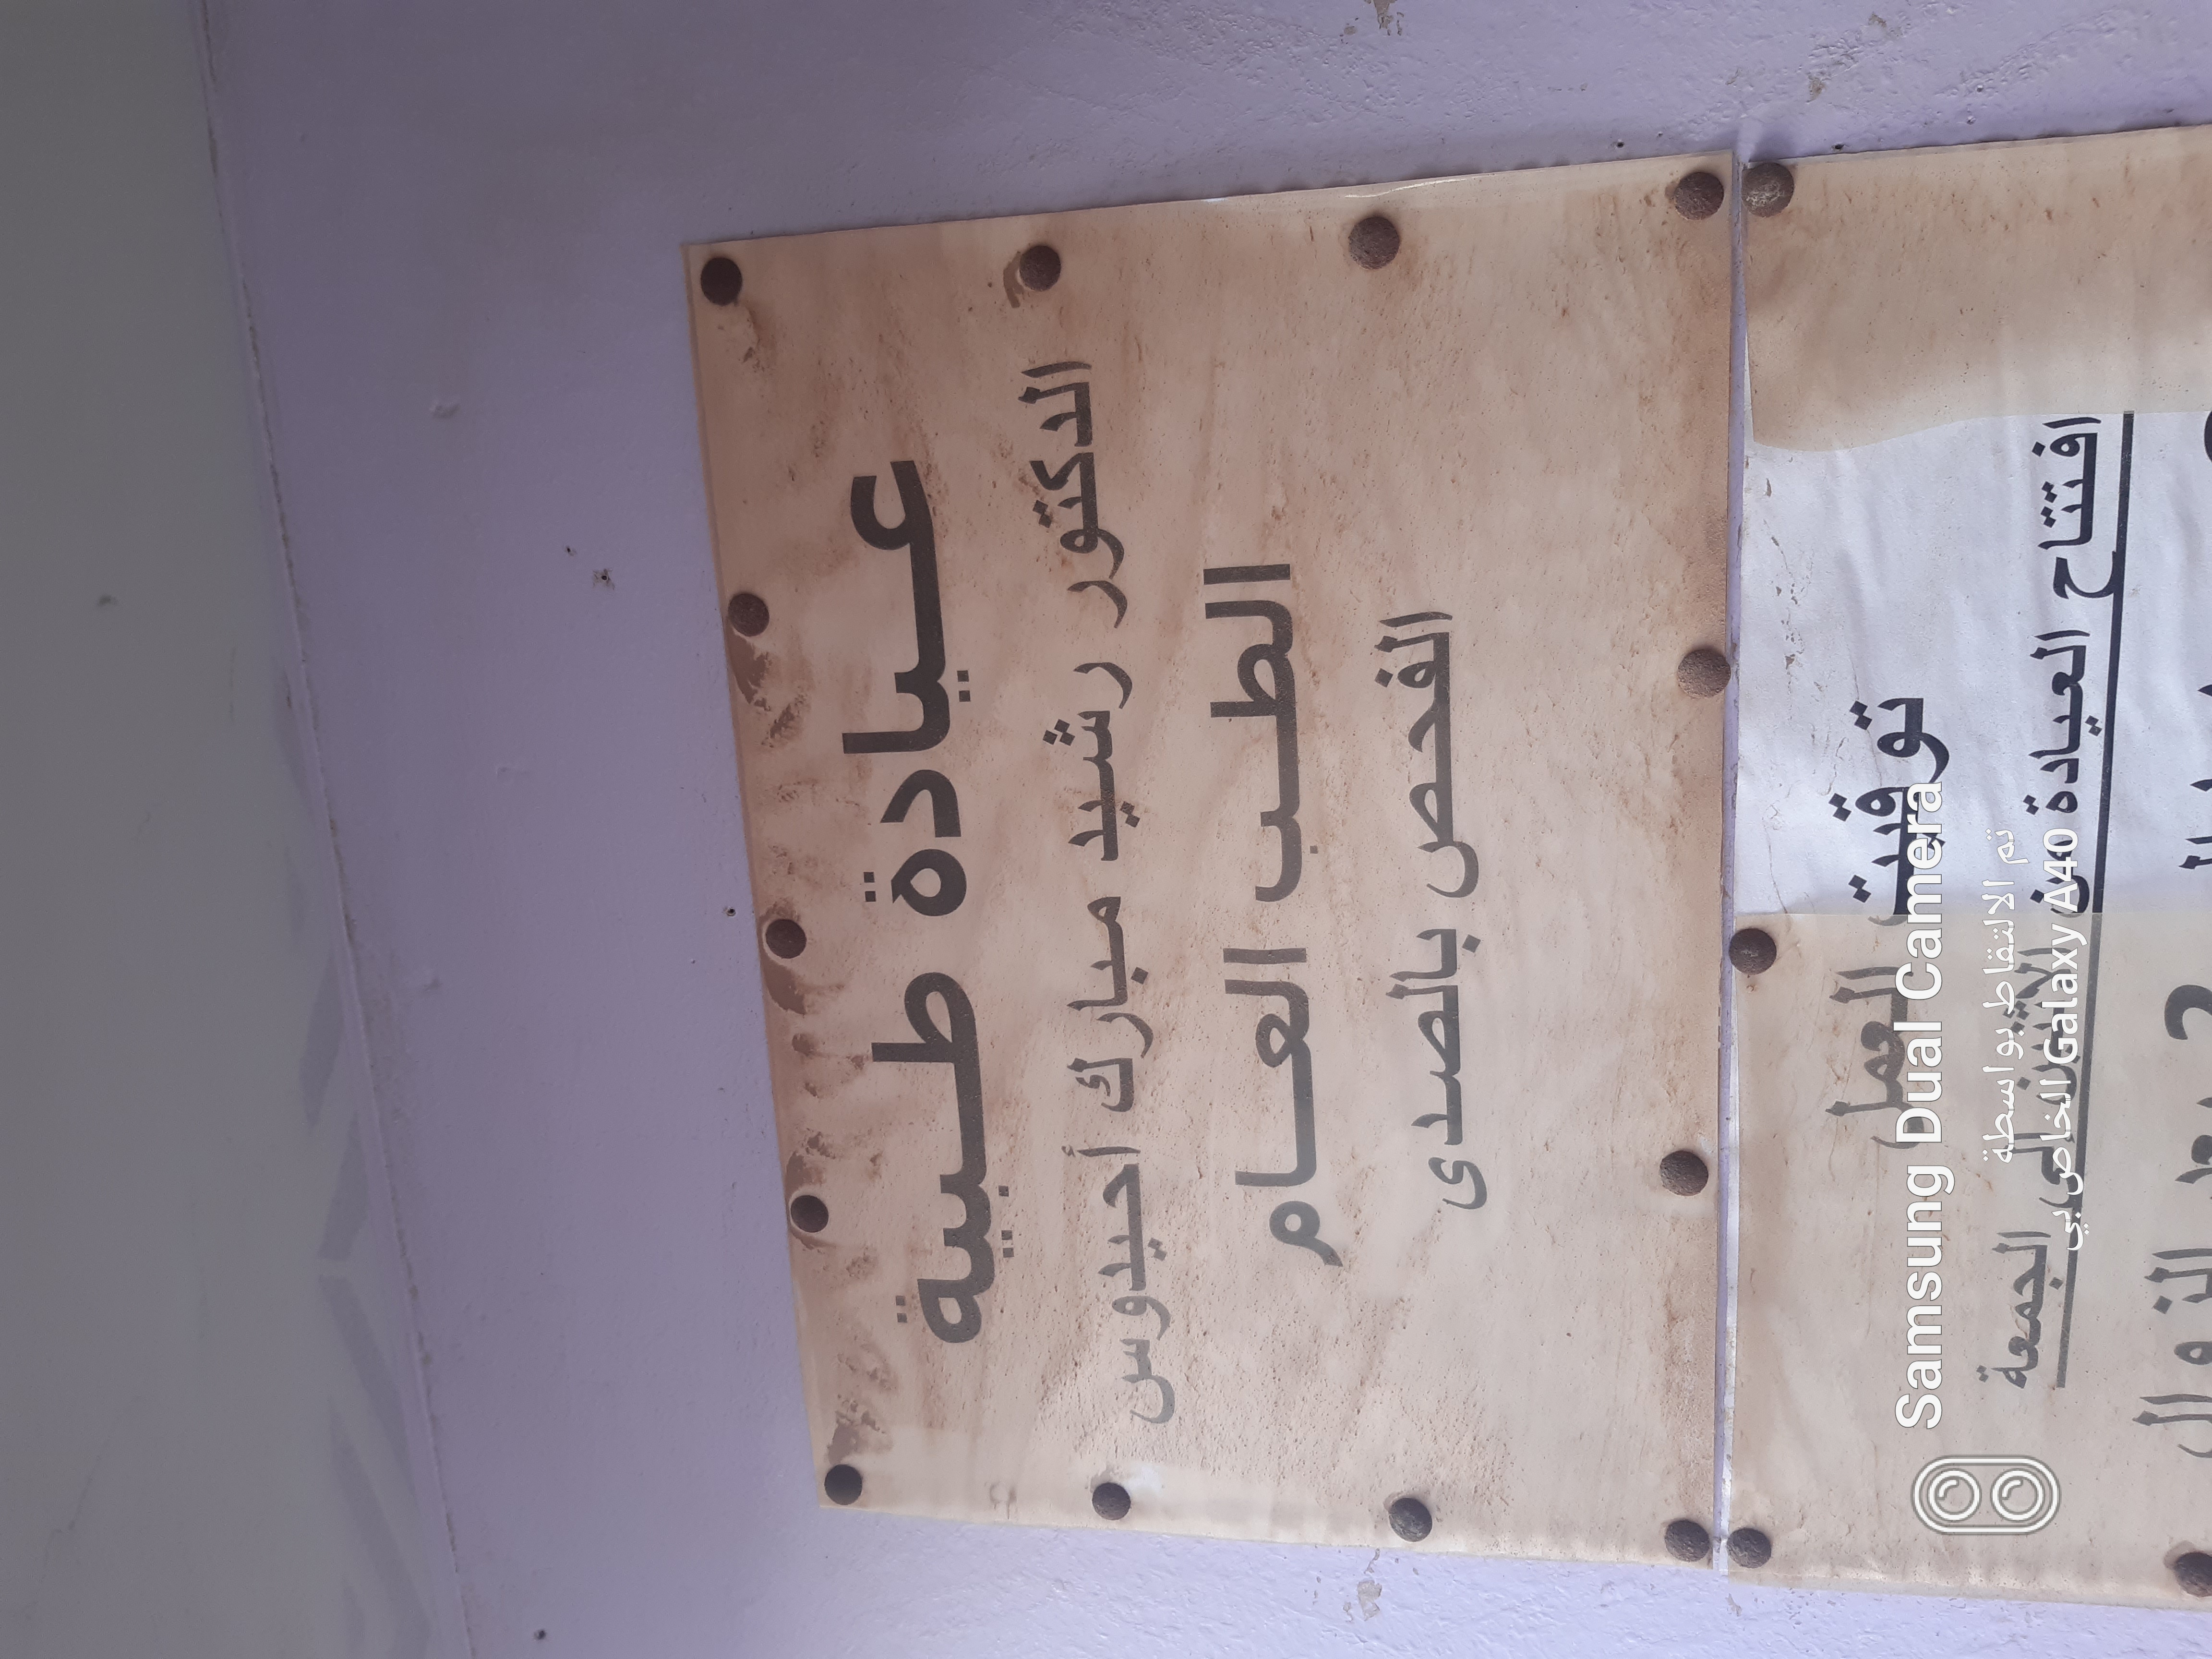 عيادة طبية
الدكتور رشيد مبارك أحيدوس
الطب العام
الفحص بالصدى
توقيت العمل
افتتاح العيادة من الإثنين إلى الجمعة
بعد الزوال
Samsung Dual Camera
تم الالتقاط بواسطة
Galaxy A40 الخاص بي